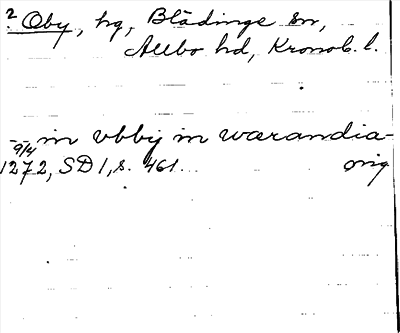 ? Oby, hg, Blädinge sn,
Allbo hd, Kronob. l.
-- in vbbij in wærandia-
9/4
1272, SD 1, s. 461. orig